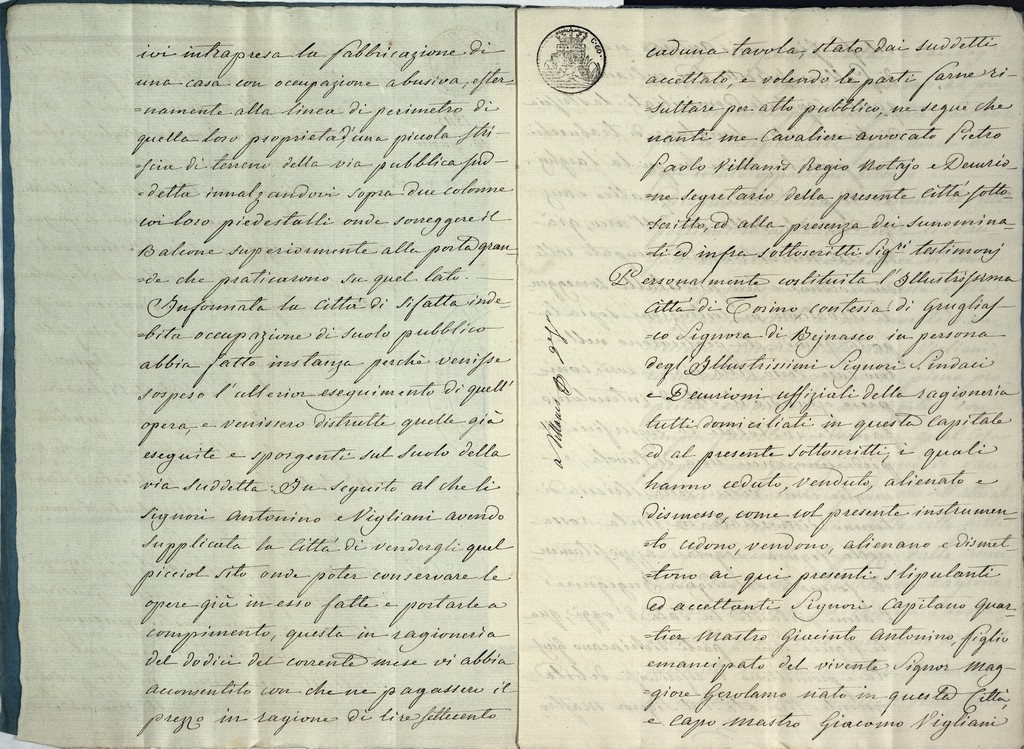 ivi intrapresa la fabbricazione di
una casa con occupazione abusiva, ester-
-namente alla linea di perimetro di
quella loro proprietà, una piccola stri-
-scia di terreno della via pubblica sud-
-detta innalzandovi sopra due colonne
coi loro piedestalli onde sorreggere il
Balcone superiormente alla porta gran-
-de che praticarono su quel lato.
Informata la Città di sifatta inde
-bita occupazione di suolo pubblico
abbia fatto instanza perchè venisse
sospeso l'ulterior eseguimento di quell'
opera, e venissero distrutte quelle già
eseguite e sporgenti sul suolo della
via suddetta: In seguito al che li
Signori Antonino e Vigliani avendo
supplicata la Città di vendergli quel
picciol sito onde poter conservare le
opere già in esso fatte e portarle a
compimento, questa in ragioneria
del dodici del corrente mese vi abbia
acconsentito con che ne pagassero il
prezzo in ragione di lire settecento
caduna tavola, stato dai suddetti
accettato, e volendo le parti farne ri-
-sultare per atto pubblico, ne segue che
nanti me Cavaliere avvocato Pietro
Paolo Villanis Regio Notajo e Decurio-
-ne segretario della presente Città sotto-
-scritto, ed alla presenza dei sunomina-
-ti ed infra sottoscritti Sig.ri testimonj
Personalmente costituita l'Illustrissima
Città di Torino contessa di Gruglias-
-co Signora di Bejnasco in persona
degl'Illustrissimi Signori Sindaci
e Decurioni uffiziali della ragioneria
tutti domiciliati in questa Capitale
ed al presente sottoscritti, i quali
hanno ceduto, venduto, alienato e
dismesso, come col presente instrumen-
-to cedono, vendono, alienano e dismet-
-tono ai qui presenti stipulanti
ed accettanti Signori Capitano Quar-
-tier Mastro Giacinto Antonino, figlio
emancipato del vivente Signor Mag-
-giore Gerolamo nato in questa Città,
e capo Mastro Giacomo Vigliani